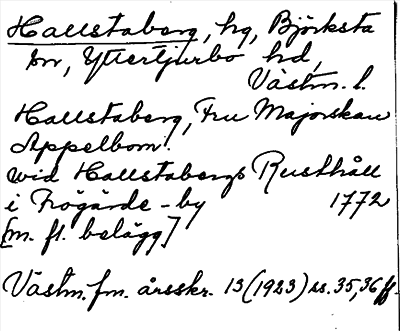 Hallstaberg, hg, Björksta
sn, Yttertjurbo hd,
Västm. l.
Hallstaberg, Fru Majorskan
Appelbom.
wid Hallstabergs Rusthåll
i Frögärde-by 1772
[m. fl. belägg]
Västm. fm. årsskr. 13 (1923) ss. 35, 36 ff.